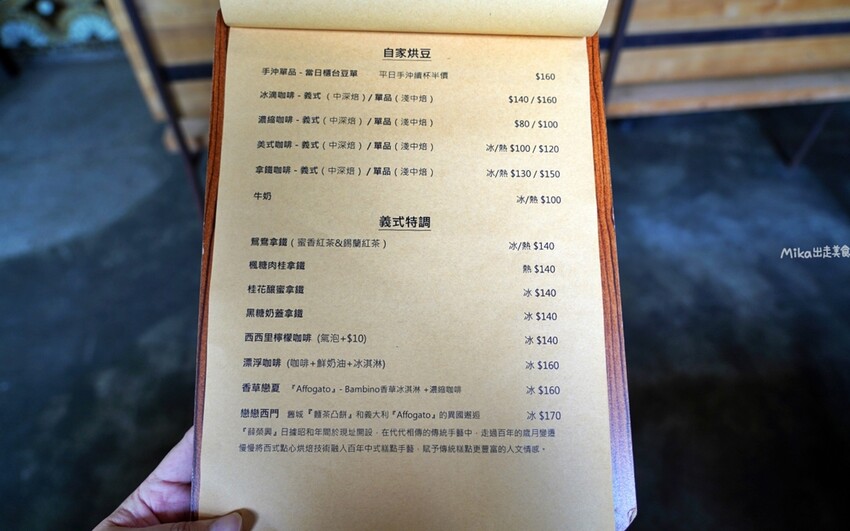 自家烘豆
手沖單品 - 當日櫃台豆單 平日手沖續杯半價 $160
冰滴咖啡 - 義式 ( 中深焙 ) / 單品 ( 淺中焙 ) $140 / $160
濃縮咖啡 - 義式 ( 中深焙 ) / 單品 ( 淺中焙 ) $80 / $100
美式咖啡 - 義式 ( 中深焙 ) / 單品 ( 淺中焙 ) 冰/熱 $100 / $120
拿鐵咖啡 - 義式 ( 中深焙 ) / 單品 ( 淺中焙 ) 冰/熱 $130 / $150
牛奶 冰/熱 $100
義式特調
鴛鴦拿鐵 ( 蜜香紅茶&錫蘭紅茶 ) 冰/熱 $140
楓糖肉桂拿鐵 熱 $140
桂花釀蜜拿鐵 冰 $140
黑糖奶蓋拿鐵 冰 $140
西西里檸檬咖啡 (氣泡+$10) 冰 $140
漂浮咖啡 (咖啡+鮮奶油+冰淇淋) 冰 $160
香草戀夏 『Affogato』- Bambino香草冰淇淋 +濃縮咖啡 冰 $160
戀戀西門 舊城『麵茶凸餅』和義大利『Affogato』的異國邂逅 冰 $170
『薛榮興』日據昭和年間於現址開設，在代代相傳的傳統手藝中，走過百年的歲月變遷
慢慢將西式點心烘焙技術融入百年中式糕點手藝，賦予傳統糕點更豐富的人文情感。
Mika出走美食